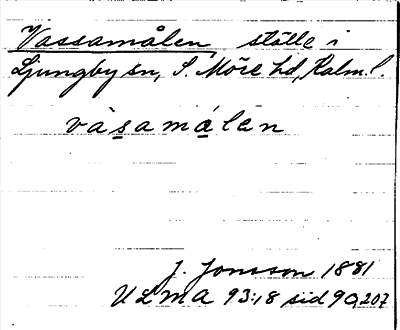 Vassamålen ställe i
Ljungby sn, S. Möre hd, Kalm. l.
vàsamálen
J. Jonsson 1881
ULMA 93:18 sid 90, 207